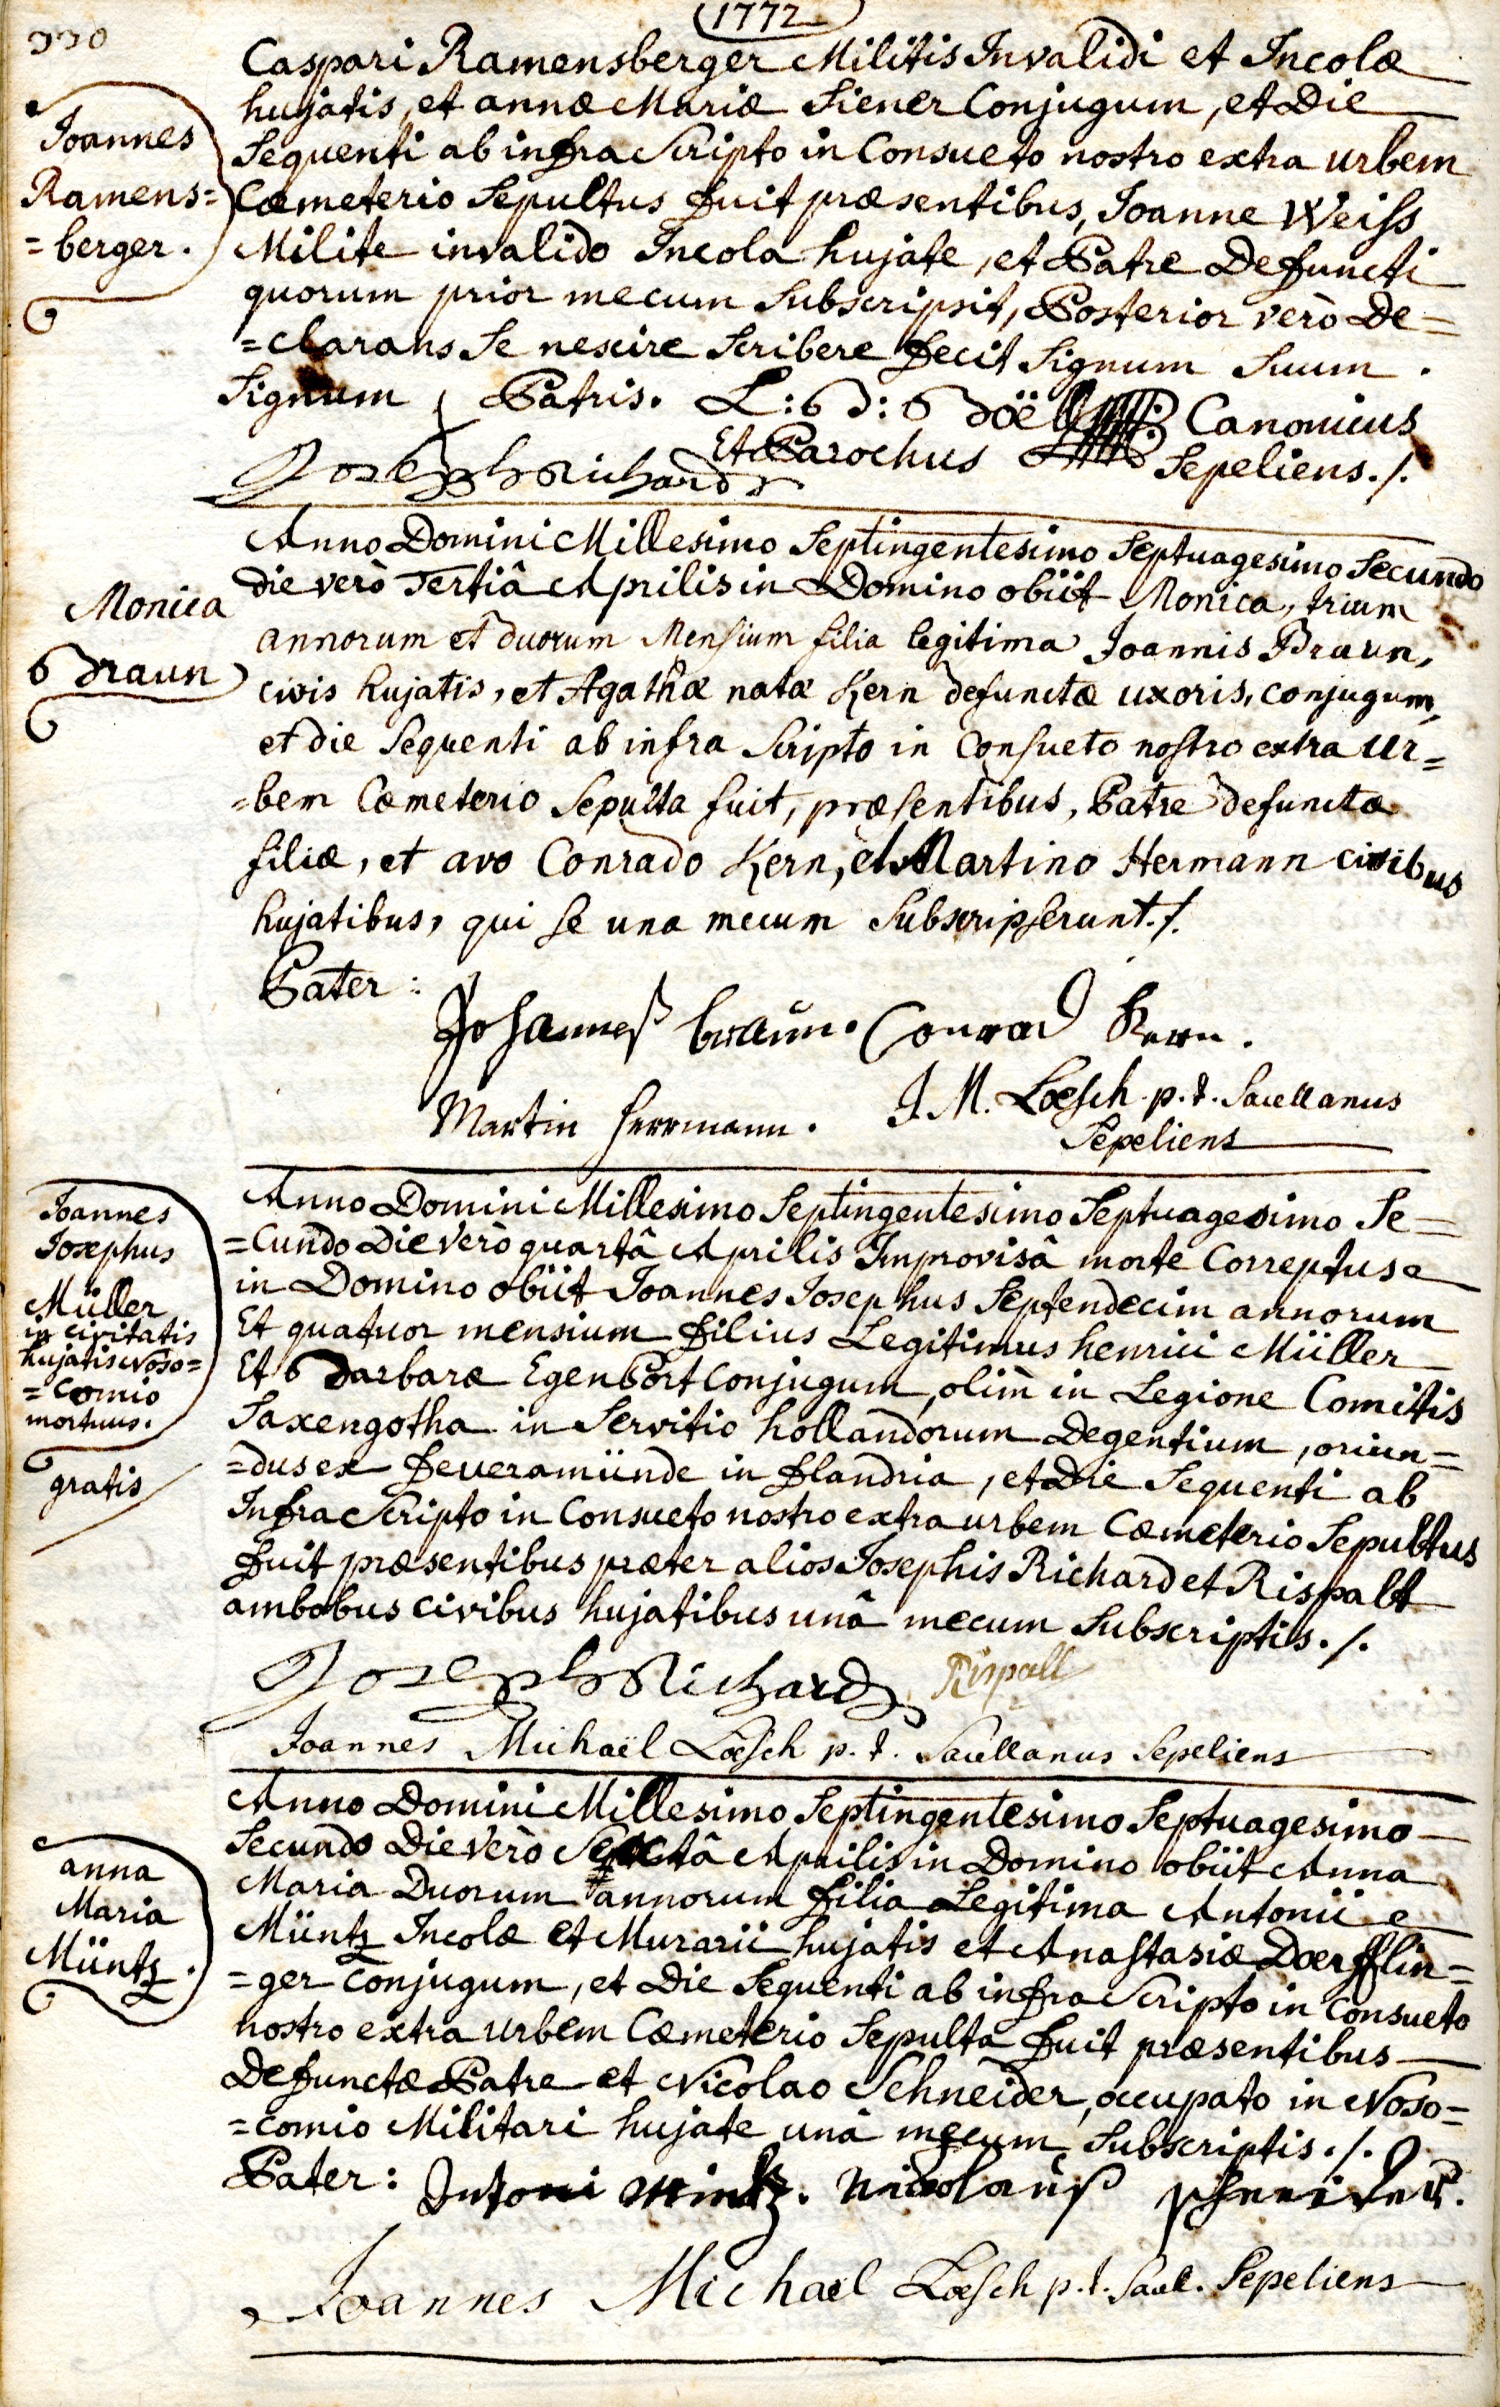 1772
330
Caspari Ramensberger Militis Invalidi et Incolæ
hujatis, et annæ Mariæ Siener Conjugum, et Die
Sequenti ab infra Scripto in Consueto nostro extra urbem
Cœmeterio Sepultus fuit præsentibus, Joanne Weiss
Milite invalido Incola hujate, et Patre Defuncti
quorum prior mecum Subscripsit, Posterior verò De=
=clarans Se nescire Scribere fecit Signum Suum.
Signum Patris. L: B: Boëll Canonicus
Et Parochus Sepeliens./.
Joseph Richard
Joannes
Ramens=
=berger.
Anno Domini Millesimo Septingentesimo Septuagesimo Secundo
die verò Tertiâ Aprilis in Domino obiit Monica, trium
annorum et duorum Mensium filia legitima Joannis Braun,
civis hujatis, et Agathæ natæ Kern defunctæ uxoris, conjugum,
et die Sequenti ab infra Scripto in Consueto nostro extra Ur=
=bem Cœmeterio Sepulta fuit, præsentibus, Patre defunctæ
filiæ, et avo Conrado Kern, et Martino Hermann civibus
hujatibus, qui se una mecum Subscripserunt./.
Pater:
Johannes braun. Conrad Kern.
Martin Herrmann. J. M. Lœsch p. t. Sacellanus
Sepeliens
Monica
Braun
Anno Domini Millesimo Septingentesimo Septuagesimo Se=
=Cundo Die Verò quartâ Aprilis Improvisâ morte Correptus
in Domino obiit Joannes Josephus Septendecim annorum
Et quatuor mensium filius Legitimus henrici Müller
Et Barbaræ Egenport Conjugum, olim in Legione Comitis
Saxengotha in Servitio hollandorum Degentium, oriun=
=dus ex feveramünde in flandria, et Die Sequenti ab
Infra Scripto in Consueto nostro extra urbem Cœmeterio Sepultus
fuit præsentibus præter alios Josephis Richard et Rispalt
ambobus civibus hujatibus unâ mecum Subscriptis./.
Joseph Richard Rispall
Joannes Michaël Lœsch p. t. Sacellanus Sepeliens
Joannes
Josephus
Müller
in civitatis
hujatis Noso=
=comio
mortuus.
gratis
Anno Domini Millesimo Septingentesimo Septuagesimo
Secundo Die Verò Sextâ Aprilis in Domino obiit Anna
Maria Duorum annorum filia Legitima Antonii
Müntz Incolæ et Murarii hujatis et Anastasiæ Dœrfflin=
=ger Conjugum, et Die Sequenti ab infra Scripto in Consueto
nostro extra urbem Cœmeterio Sepulta fuit præsentibus
Defunctæ Patre et Nicolao Schneider, occupato in Noso=
=comio Militari hujate unâ mecum Subscriptis./.
Pater: Antoni Mintz. Nicolaus schneider.
Joannes Michaël Lœsch p. t. Sacel. Sepeliens
anna
Maria
Müntz.